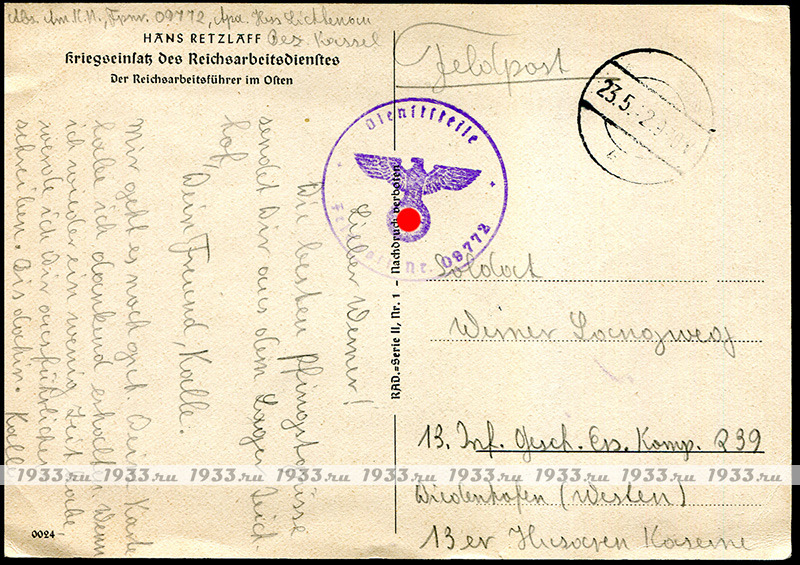 Abs. Am. K.M., Fpnr. 09772, Apa. Hess. Lichtenau
Bez. Kassel
HANS RETZLAFF
Kriegseinsatz des Reichsarbeitsdienstes
Der Reichsarbeitsführer im Osten
Feldpost
23.5.
Dienststelle
Feldpost Nr. 09772
Lieber Werner!
Die besten Pfingstgrüsse
sendet Dir aus dem Lager Eich-
hof,
Dein Freund, Kalle.
Mir geht es noch gut. Deine Karte
habe ich dankend erhalten. Wenn
ich wieder ein wenig Zeit habe
werde ich Dir ausführlicher
schreiben. Bis dahin. Kalle
RAD.=Serie II, Nr. 1 – Nachdruck verboten
Soldat
Werner Langweg
13. Inf. Gesch. Ers. Komp. 239
Wiedenhofen (Westen)
13er Husaren Kaserne
0024
1933.ru 1933.ru 1933.ru 1933.ru 1933.ru 1933.ru 1933.ru 1933.ru 1933.ru